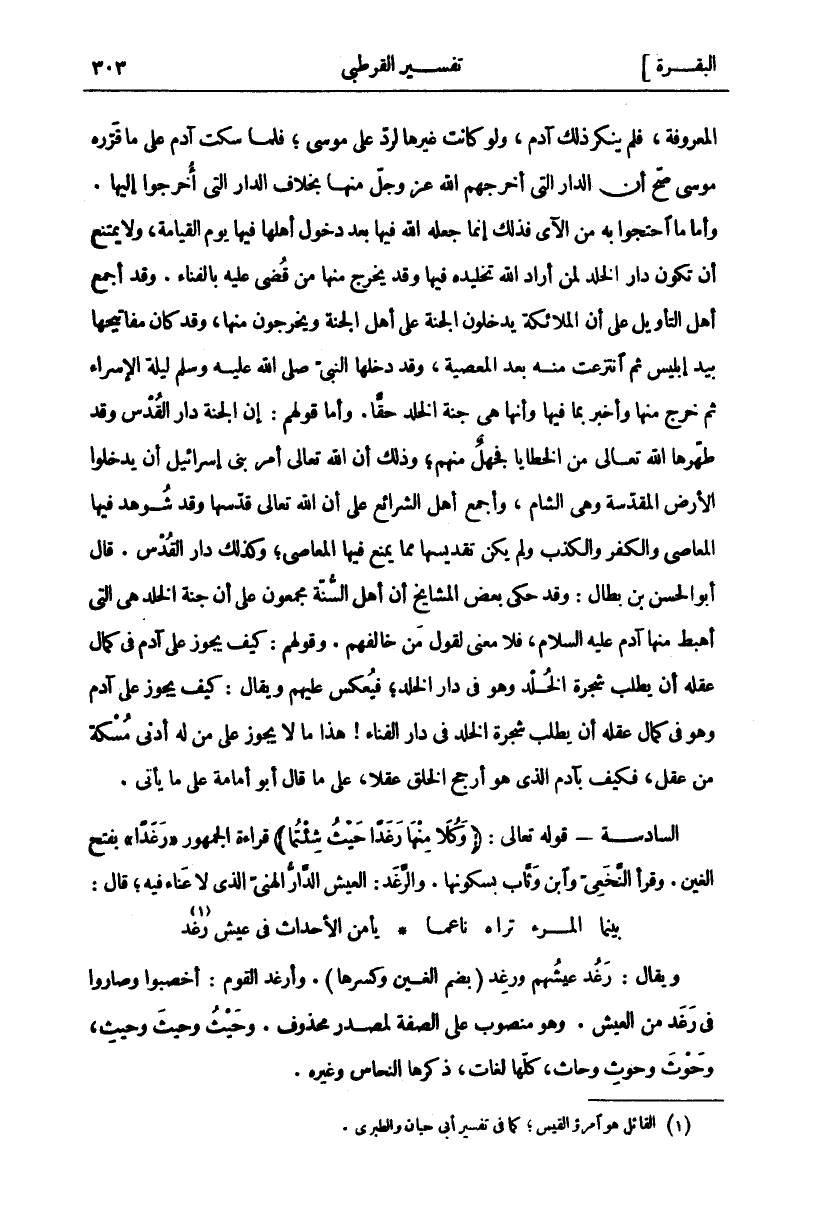 البقــرة ] تفســير القرطبى ٣٠٣
المعروفة ، فلم ينكر ذلك آدم ، ولو كانت غيرها لردّ على موسى ؛ فلمــا سكت آدم على ما قَرّره
موسى صحّ أن الدار التى أخرجهم الله عز وجلّ منهـا بخلاف الدار التى أُخرجوا إليها .
وأما ما آحتجوا به من الآى فذلك إنما جعله الله فيها بعد دخول أهلها فيها يوم القيامة ، ولا يمتنع
أن تكون دار الخلد لمن أراد الله تخليده فيها وقد يخرج منها من قُضى عليه بالفناء . وقد أجمع
أهل التأويل على أن الملائكة يدخلون الجنة على أهل الجنة ويخرجون منها ، وقد كان مفاتيحها
بيد إبليس ثم آنتزعت منــه بعد المعصية ، وقد دخلها النبىّ صلى الله عليــه وسلم ليلة الإسراء
ثم خرج منها وأخبر بما فيها وأنها هى جنة الخلد حقًّا . وأما قولهم : إن الجنة دار القُدْس وقد
طهّرها الله تعــالى من الخطايا فجهلٌ منهم ؛ وذلك أن الله تعالى أمر بنى إسرائيل أن يدخلوا
الأرض المقدّسة وهى الشام ، وأجمع أهل الشرائع على أن الله تعالى قدّسها وقد شُــوهد فيها
المعاصى والكفر والكذب ولم يكن تقديسها مما يمنع فيها المعاصى ؛ وكذلك دار القُدْس . قال
أبو الحسن بن بطال : وقد حكى بعض المشايخ أن أهل السُّنّة مجمعون على أن جنة الخلد هى التى
أهبط منها آدم عليه السلام ، فلا معنى لقول مَن خالفهم . وقولهم : كيف يجوز على آدم فى كمال
عقله أن يطلب شجرة الخُــلْد وهو فى دار الخلد ؛ فيُعكس عليهم ويقال : كيف يجوز على آدم
وهو فى كمال عقله أن يطلب شجرة الخلد فى دار الفناء ! هذا ما لا يجوز على من له أدنى مُسْكة
من عقل ، فكيف بآدم الذى هو أرجح الخلق عقلا ، على ما قال أبو أمامة على ما يأتى .
السادســة — قوله تعالى : ﴿وَكُلَا مِنْهَا رَغَدًا حَيْثُ شِئْتُمَا﴾ قراءة الجمهور «رَغَدًا» بفتح
الغين . وقرأ النَّخَعِىّ وآبن وَثّاب بسكونها . والرَّغَد : العيش الدّارُّ الهنىّ الذى لا عَناء فيه ؛ قال :
بينما المــرء تراه ناعمــا * يأمن الأحداث فى عيش رَغَد (١)
ويقال : رَغُد عيشُهم ورغِد ( بضم الغــين وكسرها ) . وأرغد القوم : أخصبوا وصاروا
فى رَغَد من العيش . وهو منصوب على الصفة لمصــدر محذوف . وحَيْثُ وحيثَ وحيثِ ،
وحَوْثَ وحوثِ وحاث ، كلّها لغات ، ذكرها النحاس وغيره .
(١) القائل هو آمرؤ القيس ؛ كما فى تفسير أبى حيان والطبرى .